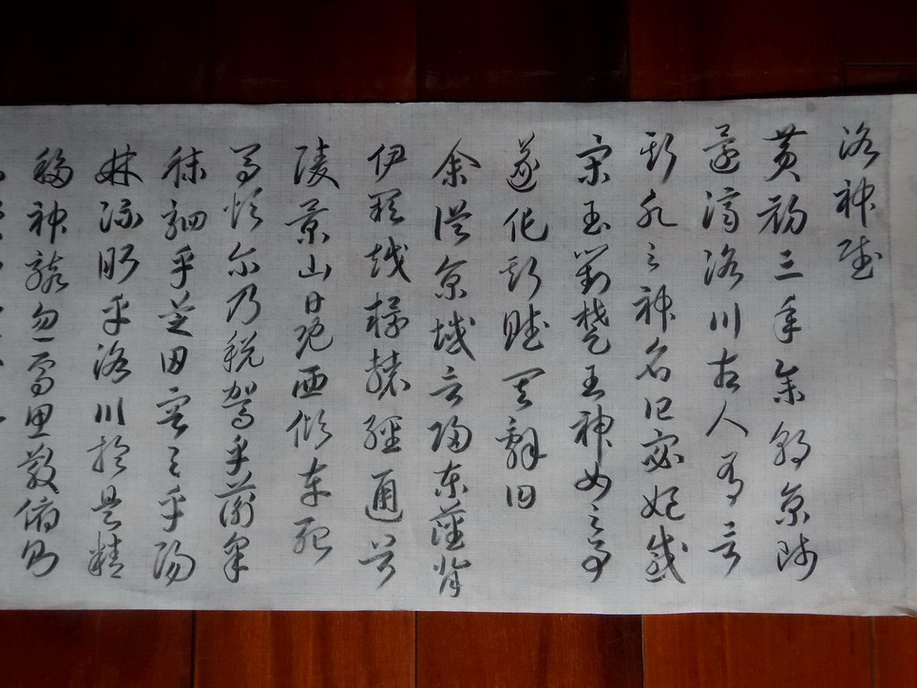 洛神賦
黄初三年余朝京師
還濟洛川古人有言
斯水之神名曰宓妃感
宋玉對楚王神女之事
遂作斯賦其辭曰
余從京域言歸東藩背
伊闕越轘轅經通谷
陵景山日既西傾車殆
馬煩尔乃税駕乎蘅皋
秣駟乎芝田容與乎陽
林流眄乎洛川於是精
移神駭忽焉思散俯則